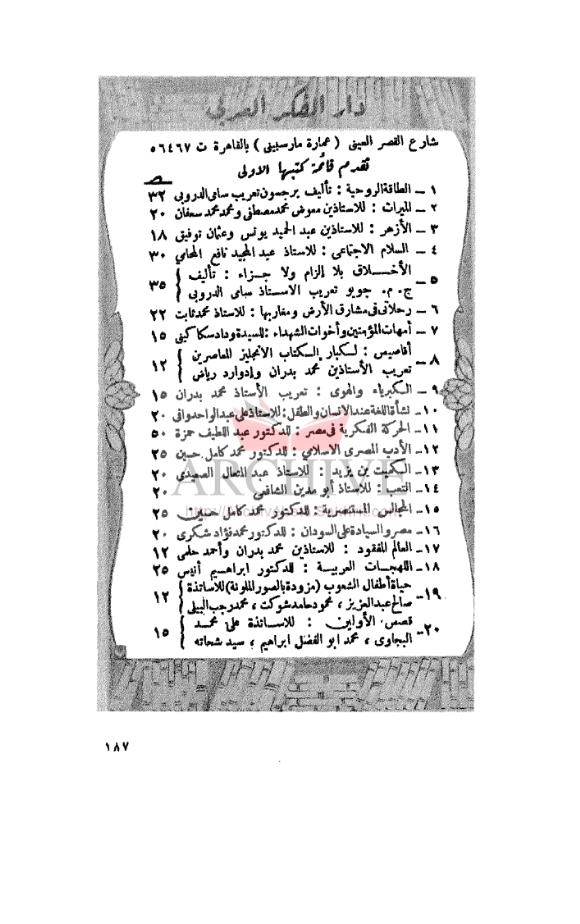 دار الفكر العربى
شارع القصر العينى ( عمارة مارسيينى ) بالقاهرة ت ٥٦٤٦٧
تقدم قائمة كتبها الاولى
١ ــ الطاقة الروحية : تأليف برجسون تعريب سامى الدروبى ٣٢
٢ ــ الميراث : للاستاذين معوض محمد مصطفى ومحمد محمد سعفان ٢٠
٣ ــ الأزهر : للاستاذين عبد الحميد يونس وعثمان توفيق ١٨
٤ ــ السلام الاجتماعى : للاستاذ عبد المجيد نافع المحامى ٣٠
٥ ــ الأخــلاق بلا إلزام ولا جــزاء : تأليف
ج . م . جويو تعريب الاســتاذ سامى الدروبى ٣٥
٦ ــ رحلاتى فى مشارق الأرض ومغاربها : للاستاذ محمد ثابت ٢٢
٧ ــ أمهات المؤمنين وأخوات الشهداء : للسيدة وداد سكاكينى ١٥
٨ ــ أقاصيص : لكبار الكتاب الانجليز المعاصرين
تعريب الأستاذين محمد بدران وإدوارد رياض ١٢
٩ ــ الكبرياء والهوى : تعريب الأستاذ محمد بدران ١٥
١٠ ــ نشأة اللغة عند الانسان والطفل : للاستاذ على عبد الواحد وافى ٢٠
١١ ــ الحركة الفكرية فى مصر : للدكتور عبد اللطيف حمزة ٥٠
١٢ ــ الأدب المصرى الاسلامى : للدكتور محمد كامل حسين ٢٥
١٣ ــ الكميت بن يزيد : للاستاذ عبد المتعال الصعيدى ٢٠
١٤ ــ التعب : للاستاذ أبو مدين الشافعى ٢٠
١٥ ــ المجالس المستنصرية : للدكتور محمد كامل حسين ٢٥
١٦ ــ مصر والسيادة على السودان : للدكتور محمد فؤاد شكرى ٢٠
١٧ ــ العالم المفقود : للاستاذين محمد بدران وأحمد حلمى ١٢
١٨ ــ اللهجات العربية : للدكتور ابراهيم أنيس ٢٥
١٩ ــ حياة أطفال الشعوب (مزودة بالصور الملونة) للاساتذة
صالح عبد العزيز ، محمود حامد شوكت ، محمد رجب البيلى ١٢
٢٠ ــ قصص الأولين : للاســاتذة على محمد
البجاوى ، محمد ابو الفضل ابراهيم ، سيد شحاته ١٥
ARCHIVE
١٨٧